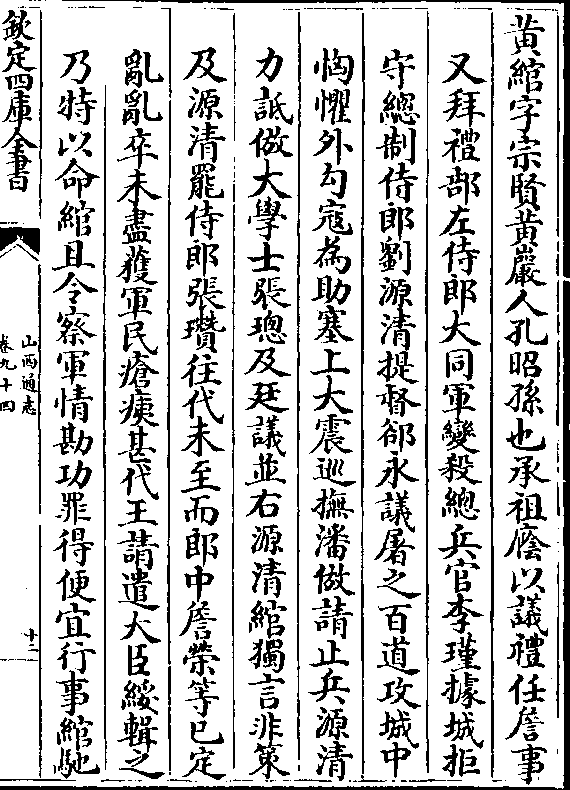 黄綰字宗賢黄巖人孔昭孫也承祖廕以議禮任詹事
又拜禮部左侍郎大同軍變殺總兵官李瑾據城拒
守總制侍郎劉源清提督郤永議屠之百道攻城中
恟懼外勾寇為助塞上大震巡撫潘倣請止兵源清
力詆倣大學士張璁及廷議並右源清綰獨言非策
及源清罷侍郎張瓚往代未至而郎中詹榮等已定
亂亂卒未盡獲軍民瘡痍甚代王請遣大臣綏輯之
乃特以命綰且令察軍情勘功罪得便宜行事綰馳
欽定四庫全書
山西通志
卷九十四
十二